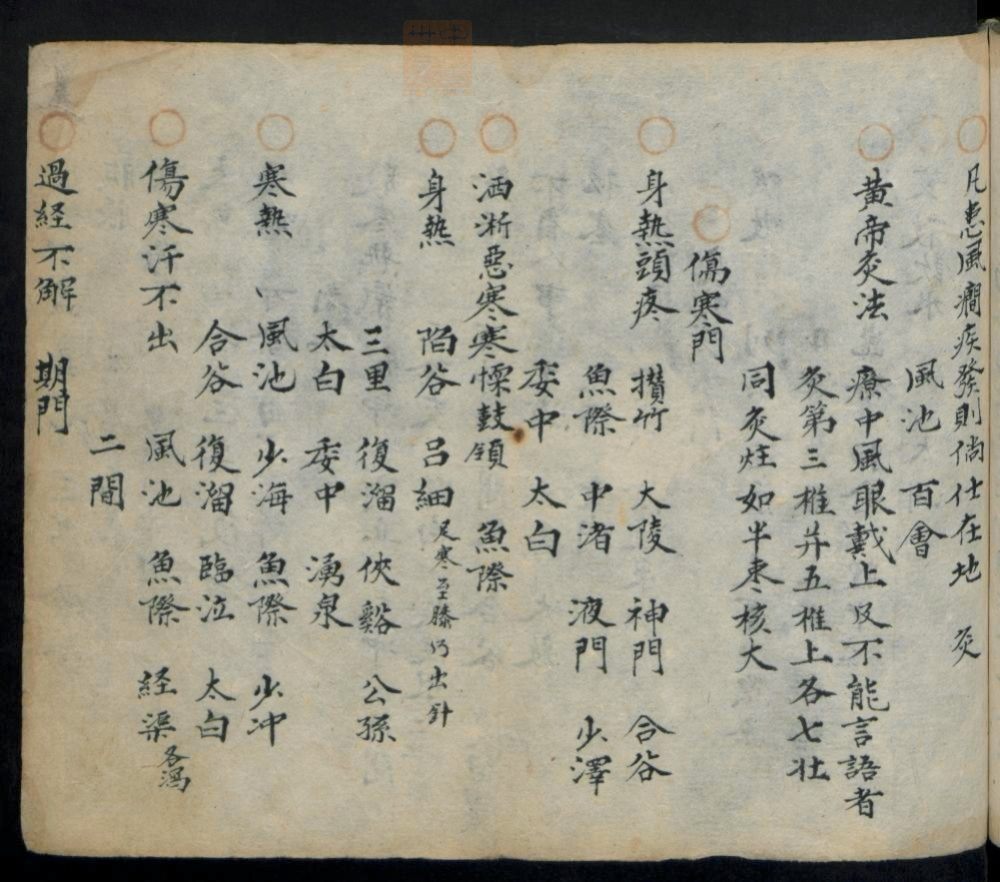 凡患風癇疾發則倘仕在地　灸
風池　百會
黄帝灸法　療中風眼戴上及不能言語者
灸第三椎并五椎上各七壯
同灸炷如半棗核大
傷寒門
身熱頭疼　攅竹　大陵　神門　合谷
魚際　中渚　液門　少澤
委中　太白
洒淅惡寒寒慄鼓頷　魚際
身熱　陷谷　吕細 足寒至膝乃出針
三里　復溜　俠谿　公孫
太白　委中　湧泉
寒熱　風池　少海　魚際　少冲
合谷　復溜　臨泣　太白
傷寒汗不出　風池　魚際　経渠 各瀉
二間
過経不解　期門